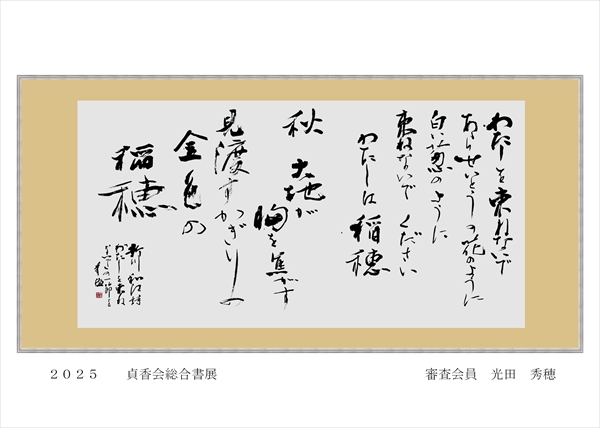 わたしを束ねないで
あらせいとうの花のように
白い葱のように
束ねないでください
わたしは稲穂
秋 大地が
胸を焦がす
見渡すかぎりの
金色の
稲穂
新川和江詩
わたしを束ね
ないでの一節を
秀穂
２０２５　貞香会総合書展
審査会員　光田　秀穂